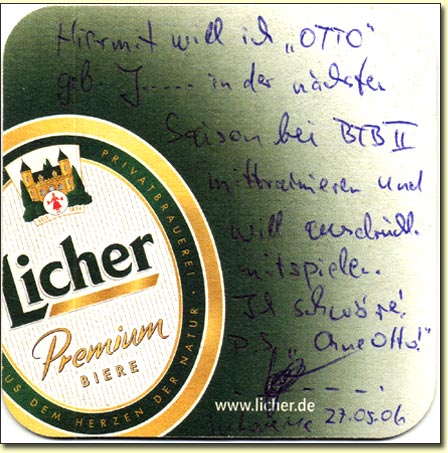 Hiermit will ich „OTTO“
geb. J..... in der nächsten
Saison bei BTB II
mittrainieren und
will
mitspielen.
Ich schwöre!
P.S. „Ohne Otto!“
PRIVATBRAUEREI
Licher
Premium
BIERE
AUS DEM HERZEN DER NATUR
www.licher.de
27.05.06